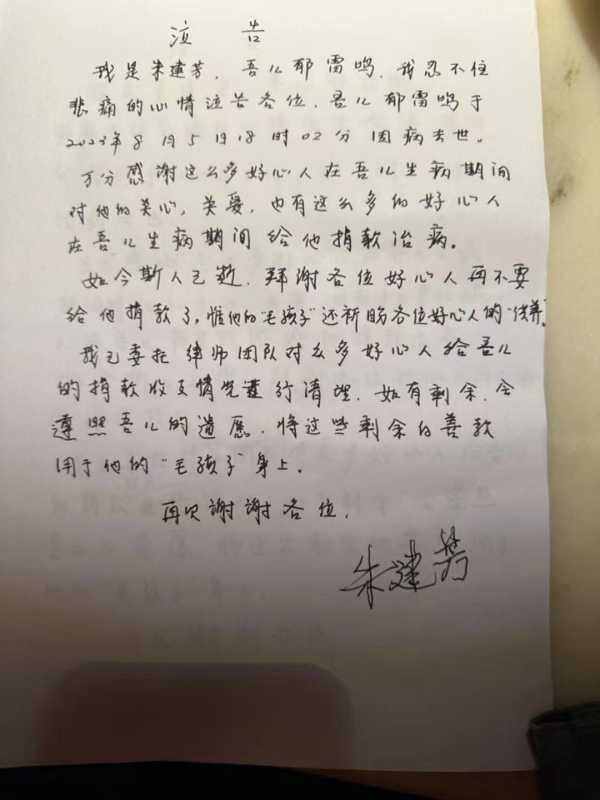 泣 告
我是朱建芳，吾儿郁雷鸣，我忍不住
悲痛的心情泣告各位，吾儿郁雷鸣于
2023年8月5日18时02分因病去世。
万分感谢这么多好心人在吾儿生病期间
对他的关心，关爱，也有这么多的好心人
在吾儿生病期间给他捐款治病。
如今斯人已逝，拜谢各位好心人再不要
给他捐款了，惟他的"毛孩子"还祈盼各位好心人的"供养"。
我已委托律师团队对么多好心人给吾儿
的捐款收支情况进行清理，如有剩余，会
遵照吾儿的遗愿，将这些剩余的善款
用于他的"毛孩子"身上。
再次谢谢各位，
朱建芳